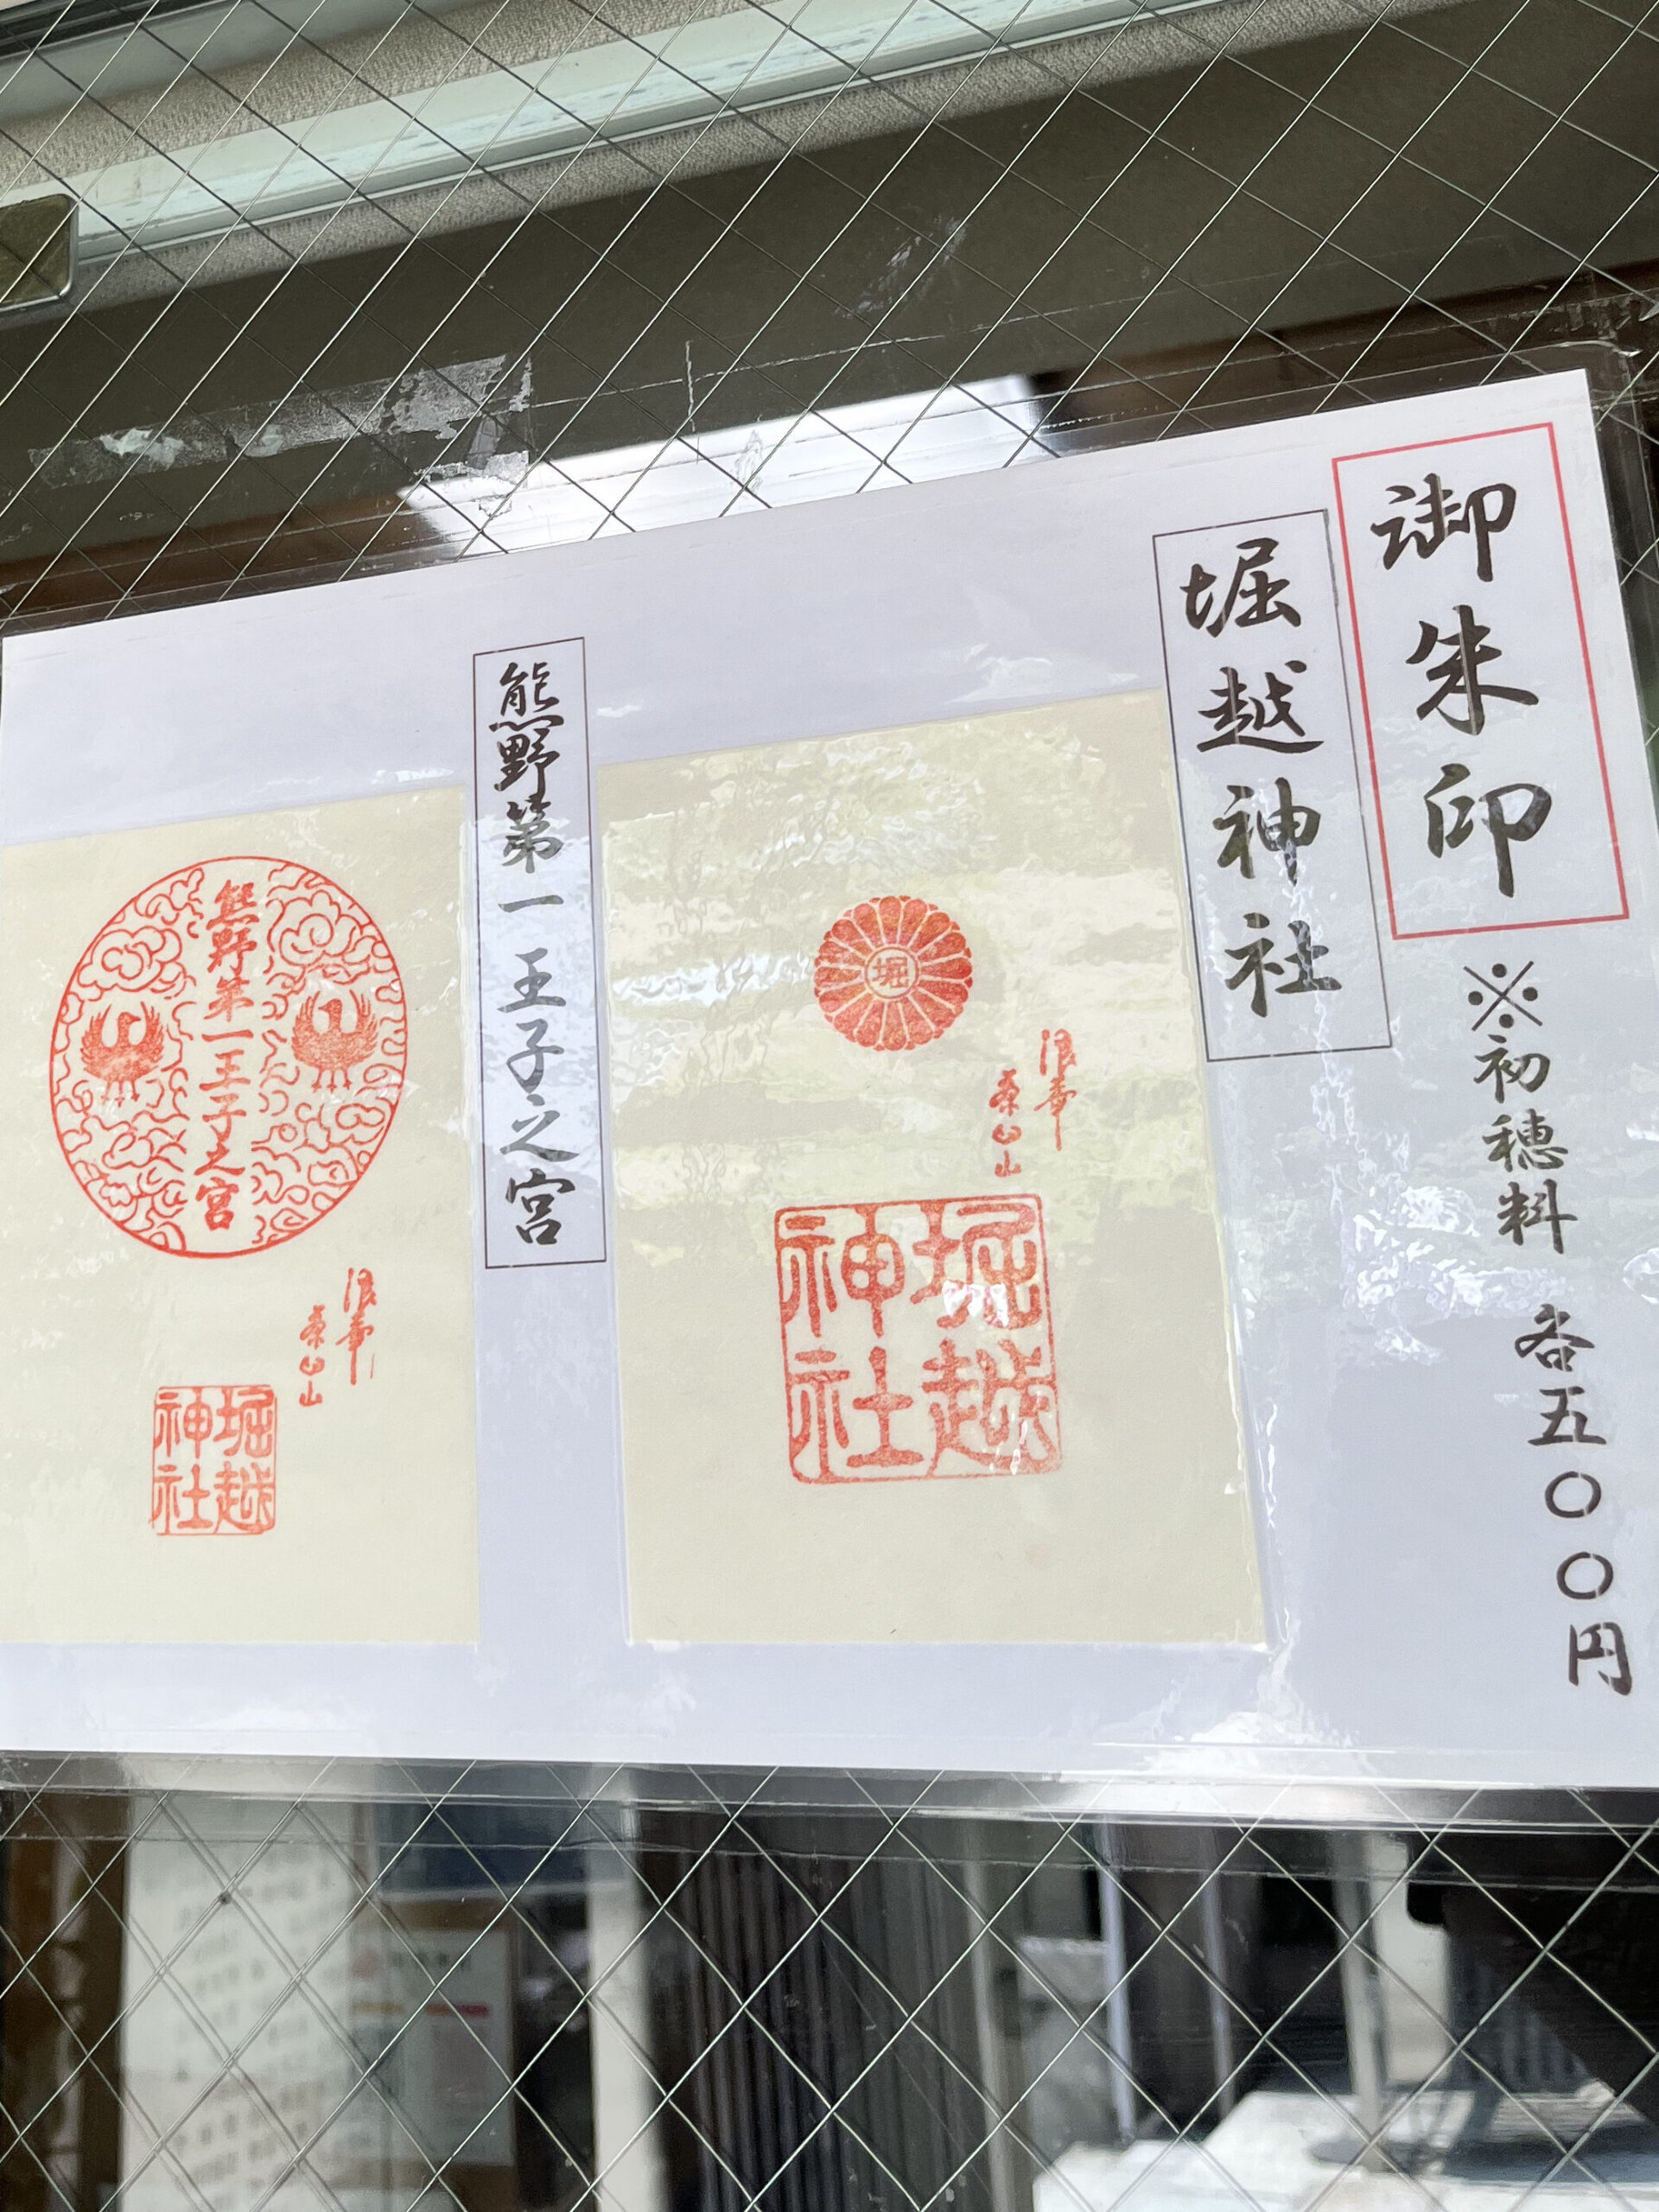 御朱印
※初穂料 各五〇〇円
堀越神社
堀
浪華
茶臼山
堀越
神社
熊野第一王子之宮
熊野第一王子之宮
浪華
茶臼山
堀越
神社